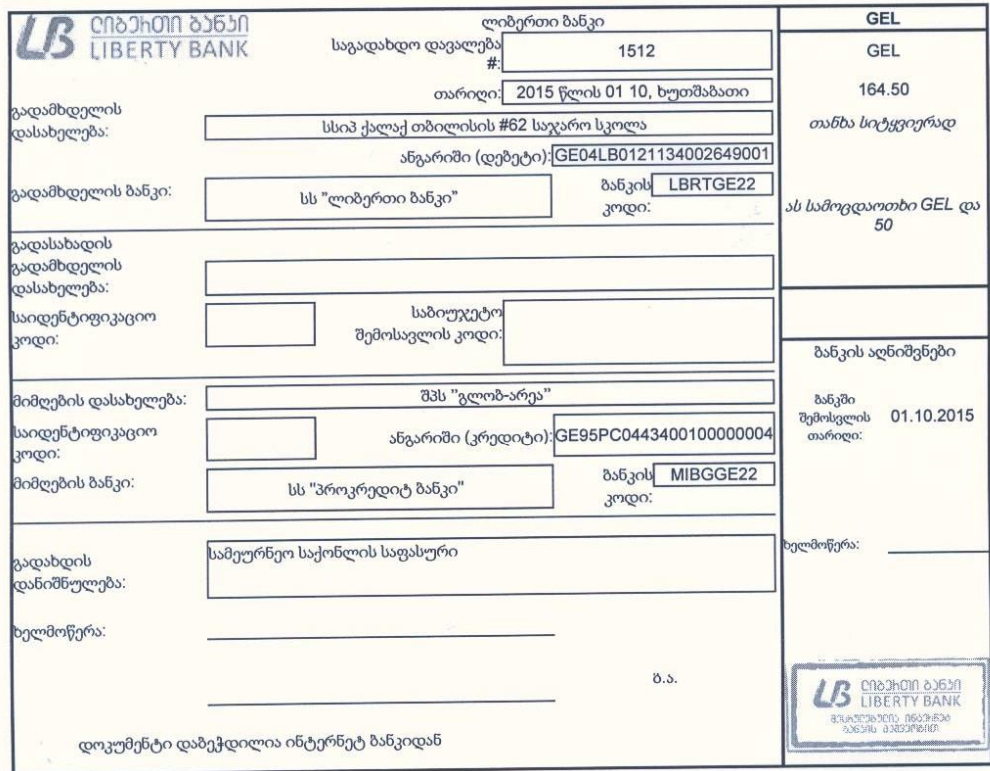 ლიბერთი ბანკი
LIBERTY BANK
ლიბერთი ბანკი
საგადახდო დავალება #: 1512
თარიღი: 2015 წლის 01 10, ხუთშაბათი
გადამხდელის დასახელება: სსიპ ქალაქ თბილისის #62 საჯარო სკოლა
ანგარიში (დებეტი): GE04LB0121134002649001
გადამხდელის ბანკი: სს "ლიბერთი ბანკი"
ბანკის კოდი: LBRTGE22
გადასახადის
გადამხდელის
დასახელება:
საიდენტიფიკაციო კოდი:
საბიუჯეტო შემოსავლის კოდი:
მიმღების დასახელება: შპს "გლობ-არეა"
საიდენტიფიკაციო კოდი:
ანგარიში (კრედიტი): GE95PC0443400100000004
მიმღების ბანკი: სს "პროკრედიტ ბანკი"
ბანკის კოდი: MIBGGE22
გადახდის დანიშნულება: სამეურნეო საქონლის საფასური
ხელმოწერა:
ბ.ა.
დოკუმენტი დაბეჭდილია ინტერნეტ ბანკიდან
GEL
GEL
164.50
თანხა სიტყვიერად
ას სამოცდაოთხი GEL და
50
ბანკის აღნიშვნები
ბანკში შემოსვლის თარიღი: 01.10.2015
ხელმოწერა:
ლიბერთი ბანკი
LIBERTY BANK
შესრულებულია ინტერნეტ
ბანკის მეშვეობით